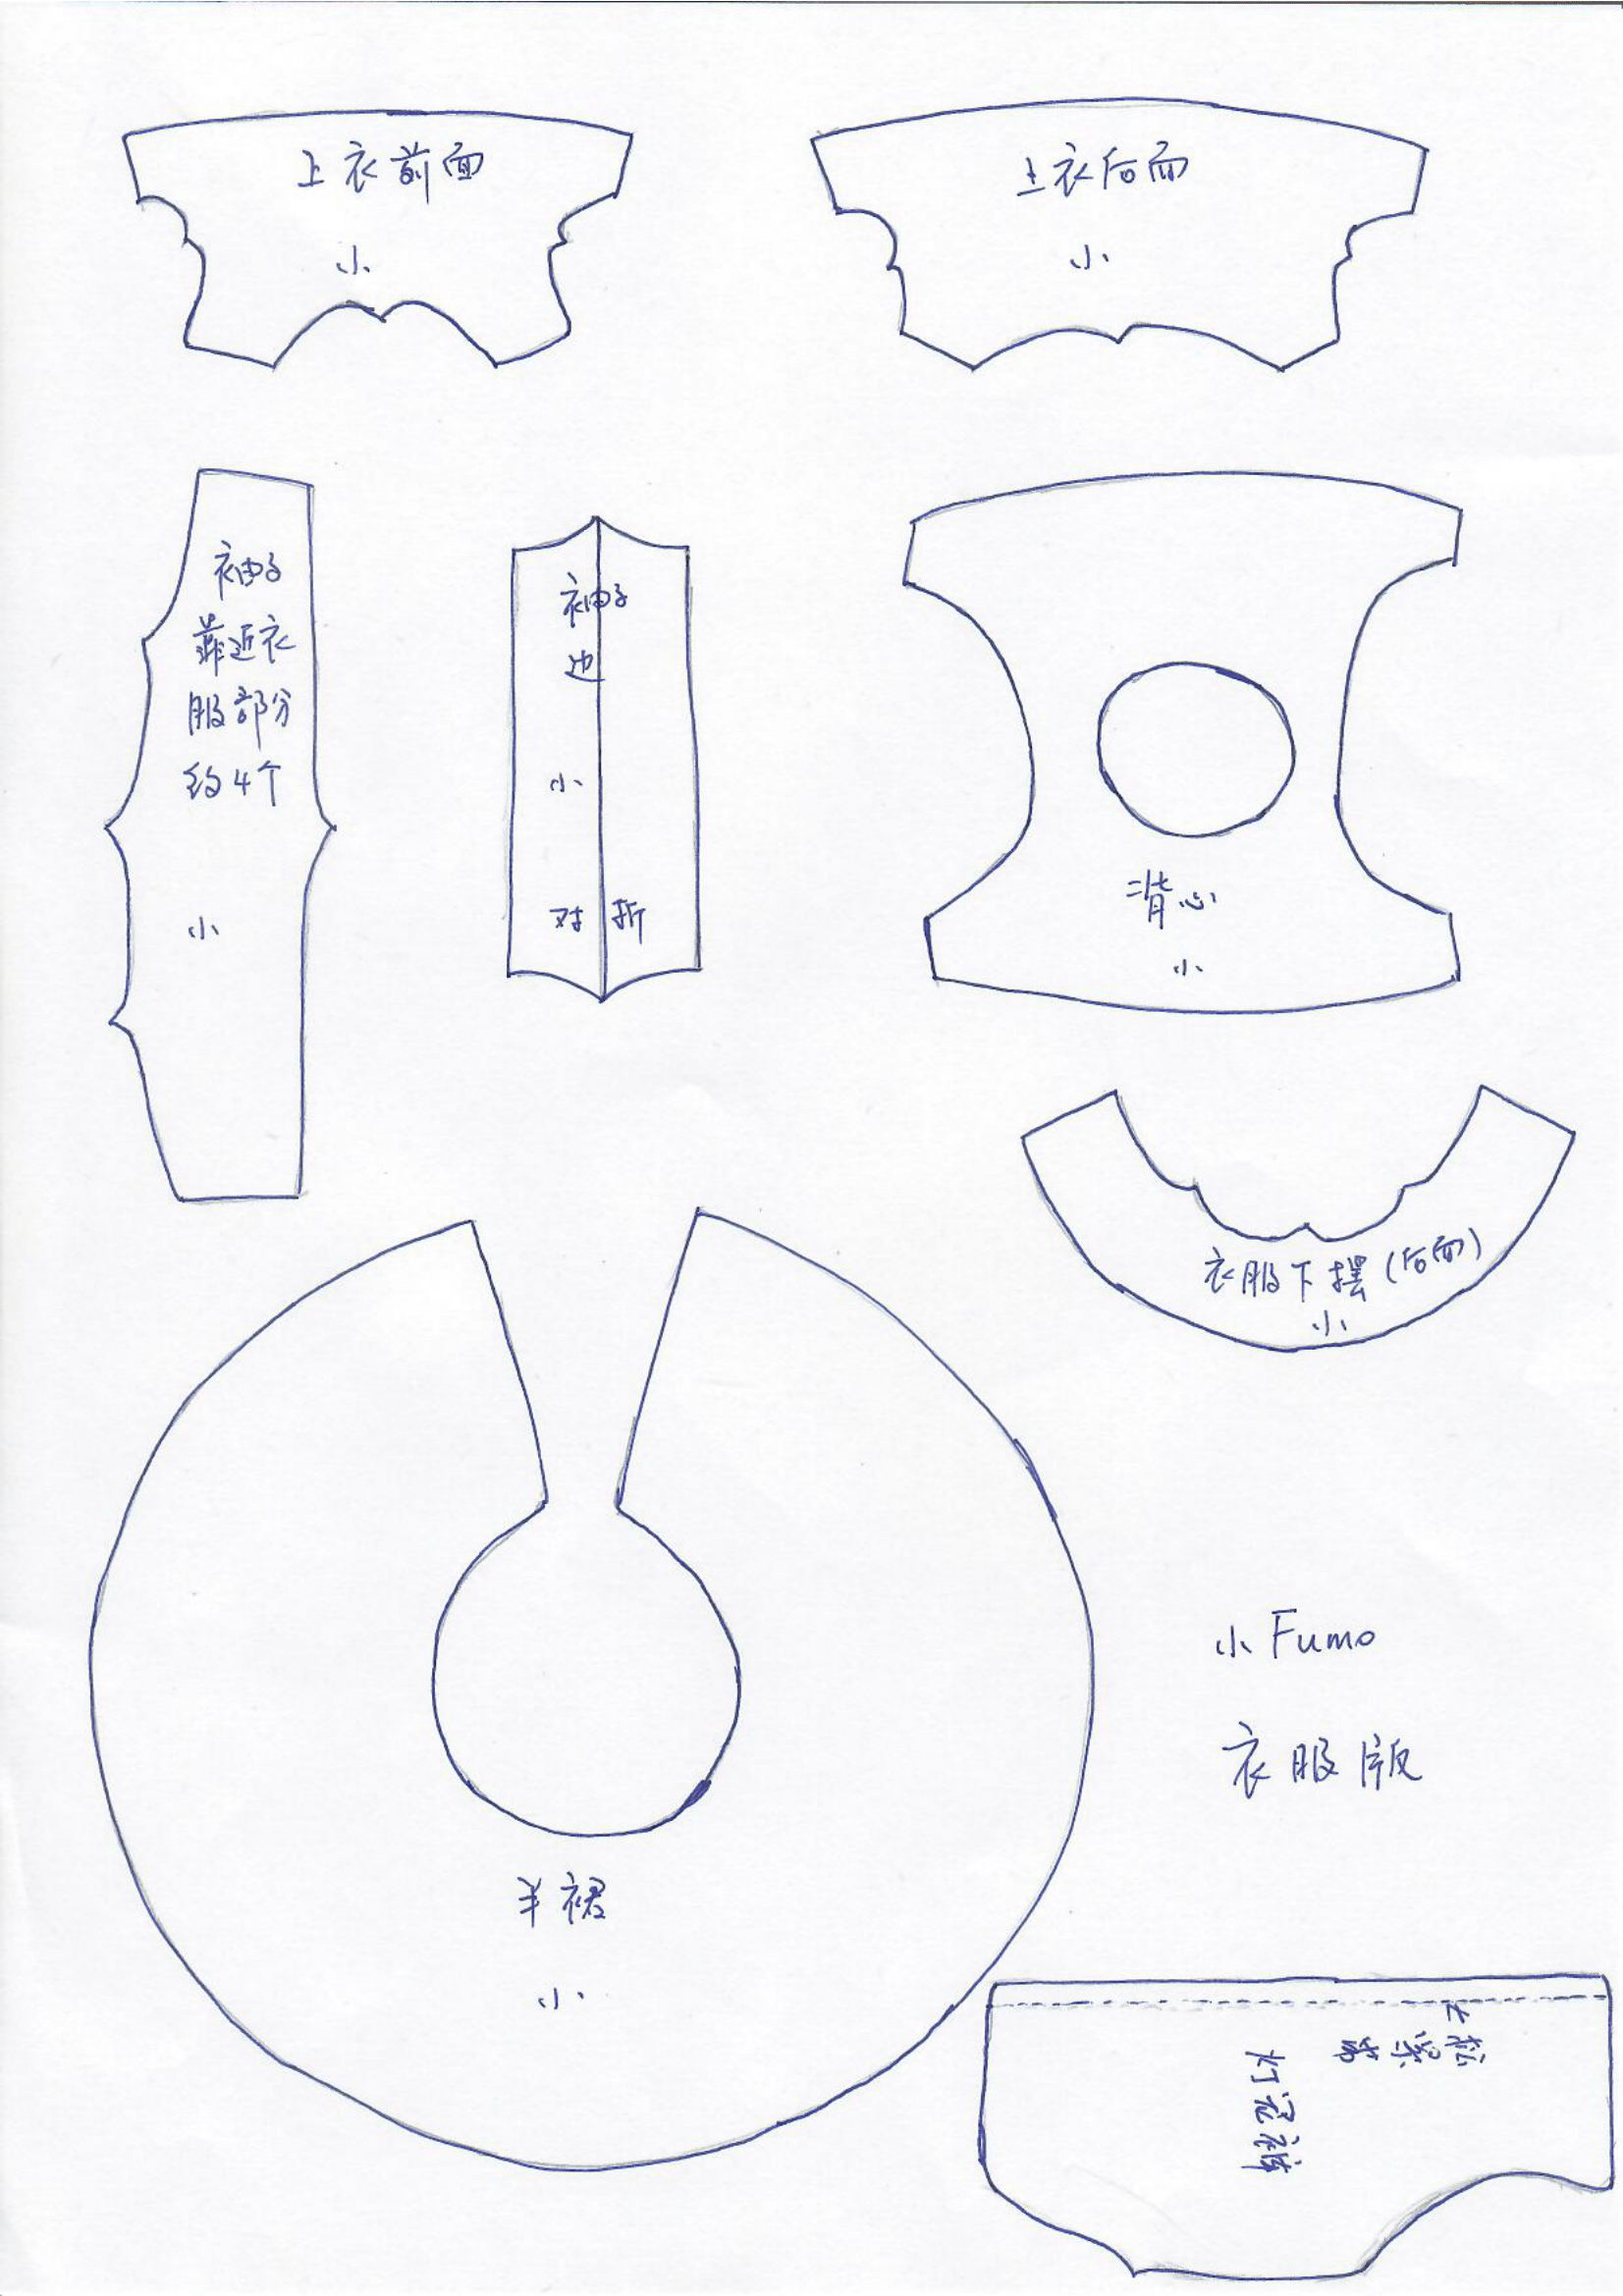 上衣前面
小
上衣后面
小
袖子
靠近衣
服部分
约4个
小
袖子
边
小
对折
背心
小
衣服下摆(后面)
小
半裙
小
小Fumo
衣服版
上松
紧
带
灯笼裤